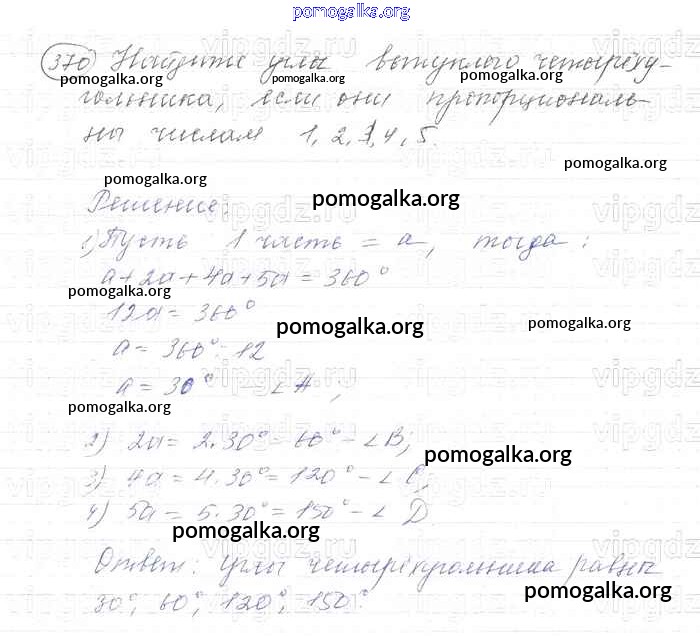 pomogalka.org
370 Найдите углы выпуклого четырёху-
pomogalka.org pomogalka.org pomogalka.org
гольника, если они пропорциональ-
ны числам 1, 2, 4, 5.
pomogalka.org
pomogalka.org
Решение: pomogalka.org
1) Пусть 1 часть = a, тогда:
a + 2a + 4a + 5a = 360°
pomogalka.org
12a = 360°
pomogalka.org pomogalka.org
a = 360° : 12
a = 30° - ∠A,
pomogalka.org
2) 2a = 2·30° = 60° - ∠B;
pomogalka.org
3) 4a = 4·30° = 120° - ∠C,
4) 5a = 5·30° = 150° - ∠D
pomogalka.org
Ответ: углы четырёхугольника равны
pomogalka.org
30°, 60°, 120°, 150°.